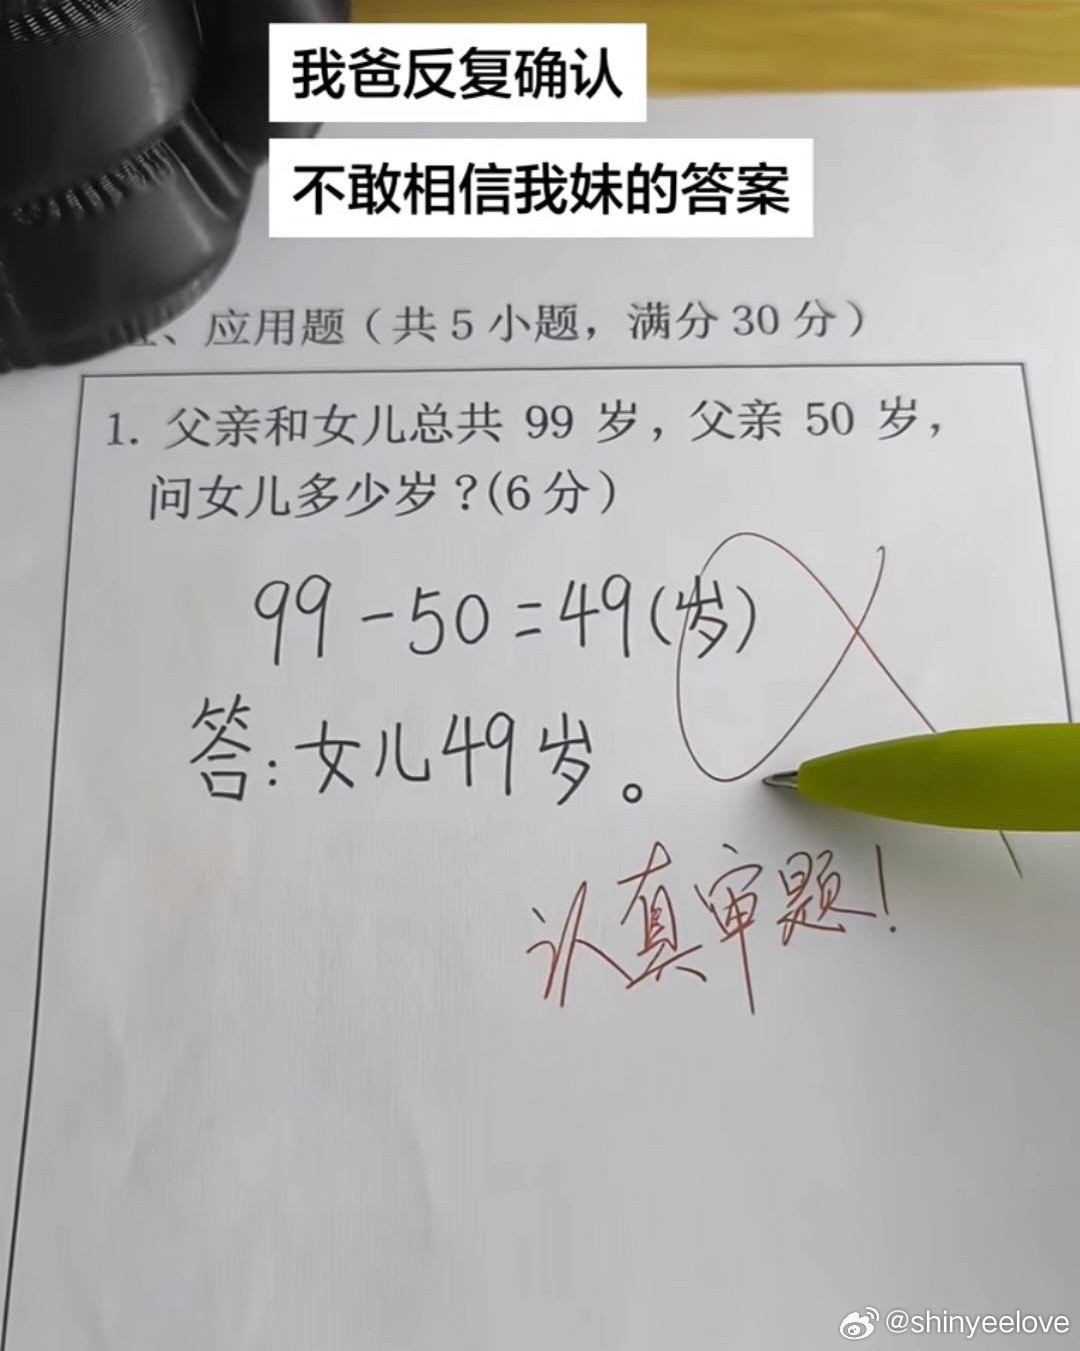 我爸反复确认
不敢相信我妹的答案
、应用题（共5小题，满分30分）
1. 父亲和女儿总共 99 岁，父亲 50 岁，
问女儿多少岁？(6分）
99-50=49(岁)
答：女儿49岁。
认真审题！
@shinyeelove